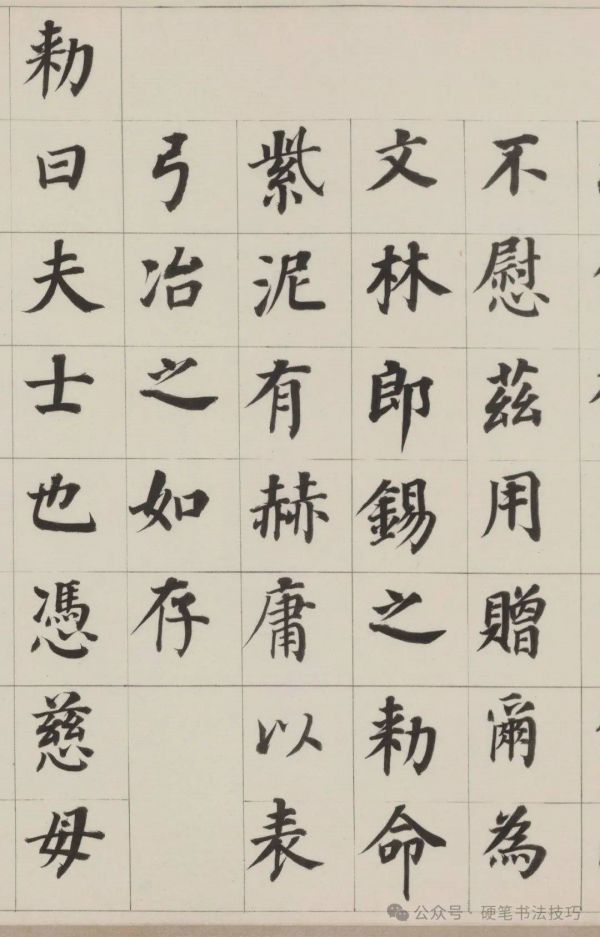 不慰茲用贈爾為
文林郎錫之勑命
紫泥有赫庸以表
弓冶之如存
勑曰夫士也憑慈母
公众号·硬笔书法技巧